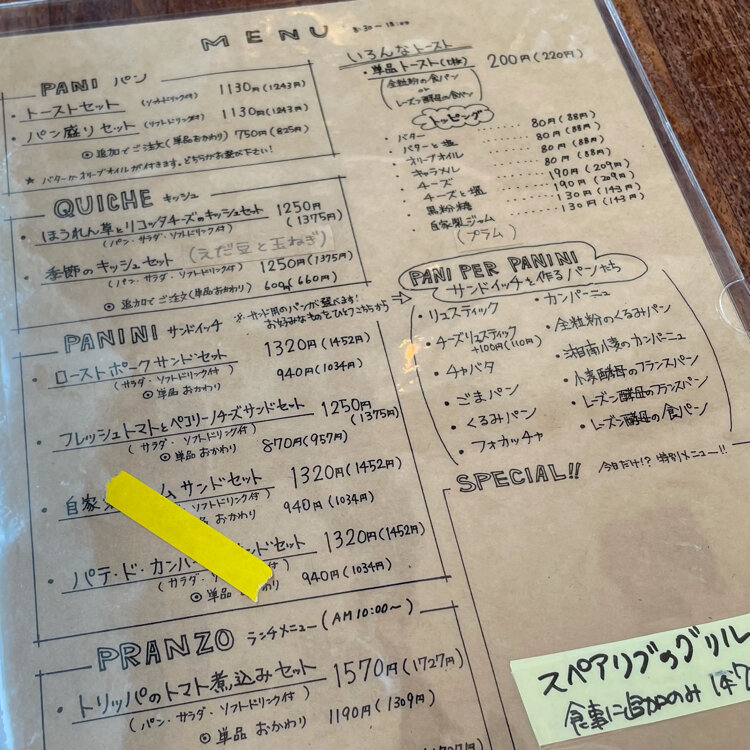 MENU 8:30~18:00
PANI パン
・トーストセット (ソフトドリンク付) 1130円(1243円)
・パン盛りセット (ソフトドリンク付) 1130円(1243円)
◎追加でご注文(単品おかわり) 750円(825円)
★バターかオリーブオイルが付きます。どちらかお選び下さい!
QUICHE キッシュ
・ほうれん草とリコッタチーズのキッシュセット 1250円(1375円)
(パン・サラダ・ソフトドリンク付)
・季節のキッシュセット (えだ豆と玉ねぎ)
(パン・サラダ・ソフトドリンク付) 1250円(1375円)
◎追加でご注文(単品おかわり) 600円(660円)
PANINI サンドイッチ
※サンド用のパンが選べます!
お好みなものをひとつこちらから→
・ローストポークサンドセット 1320円(1452円)
(サラダ・ソフトドリンク付)
◎単品おかわり 940円(1034円)
・フレッシュトマトとペコリーノチーズサンドセット 1250円(1375円)
(サラダ・ソフトドリンク付)
◎単品おかわり 870円(957円)
・自家 ムサンドセット 1320円(1452円)
ソフトドリンク付)
品おかわり 940円(1034円)
・パテ・ド・カンパ ンドセット 1320円(1452円)
(サラダ・ソ リンク付)
◎単品 おかわり 940円(1034円)
PRANZO ランチメニュー(AM10:00~)
・トリッパのトマト煮込みセット 1570円(1727円)
(パン・サラダ・ソフトドリンク付)
◎単品おかわり 1190円(1309円)
いろんなトースト
・単品トースト(1枚) 200円(220円)
(全粒粉の食パン
or
レーズン酵母の食パン)
トッピング
バター 80円(88円)
バターと塩 80円(88円)
オリーブオイル 80円(88円)
キャラメル 80円(88円)
チーズ 190円(209円)
チーズと塩 190円(209円)
黒粉糖 130円(143円)
自家製ジャム 130円(143円)
(プラム)
PANI PER PANINI
サンドイッチを作るパンたち
・リュスティック
・チーズリュスティック
+100円(110円)
・チャバタ
・ごまパン
・くるみパン
・フォカッチャ
・カンパーニュ
・全粒粉のくるみパン
・湘南小麦のカンパーニュ
・小麦酵母のフランスパン
・レーズン酵母のフランスパン
・レーズン酵母の食パン
SPECIAL!! 今日だけ!?特別メニュー!!
スペアリブのグリル
食事に追加のみ 147